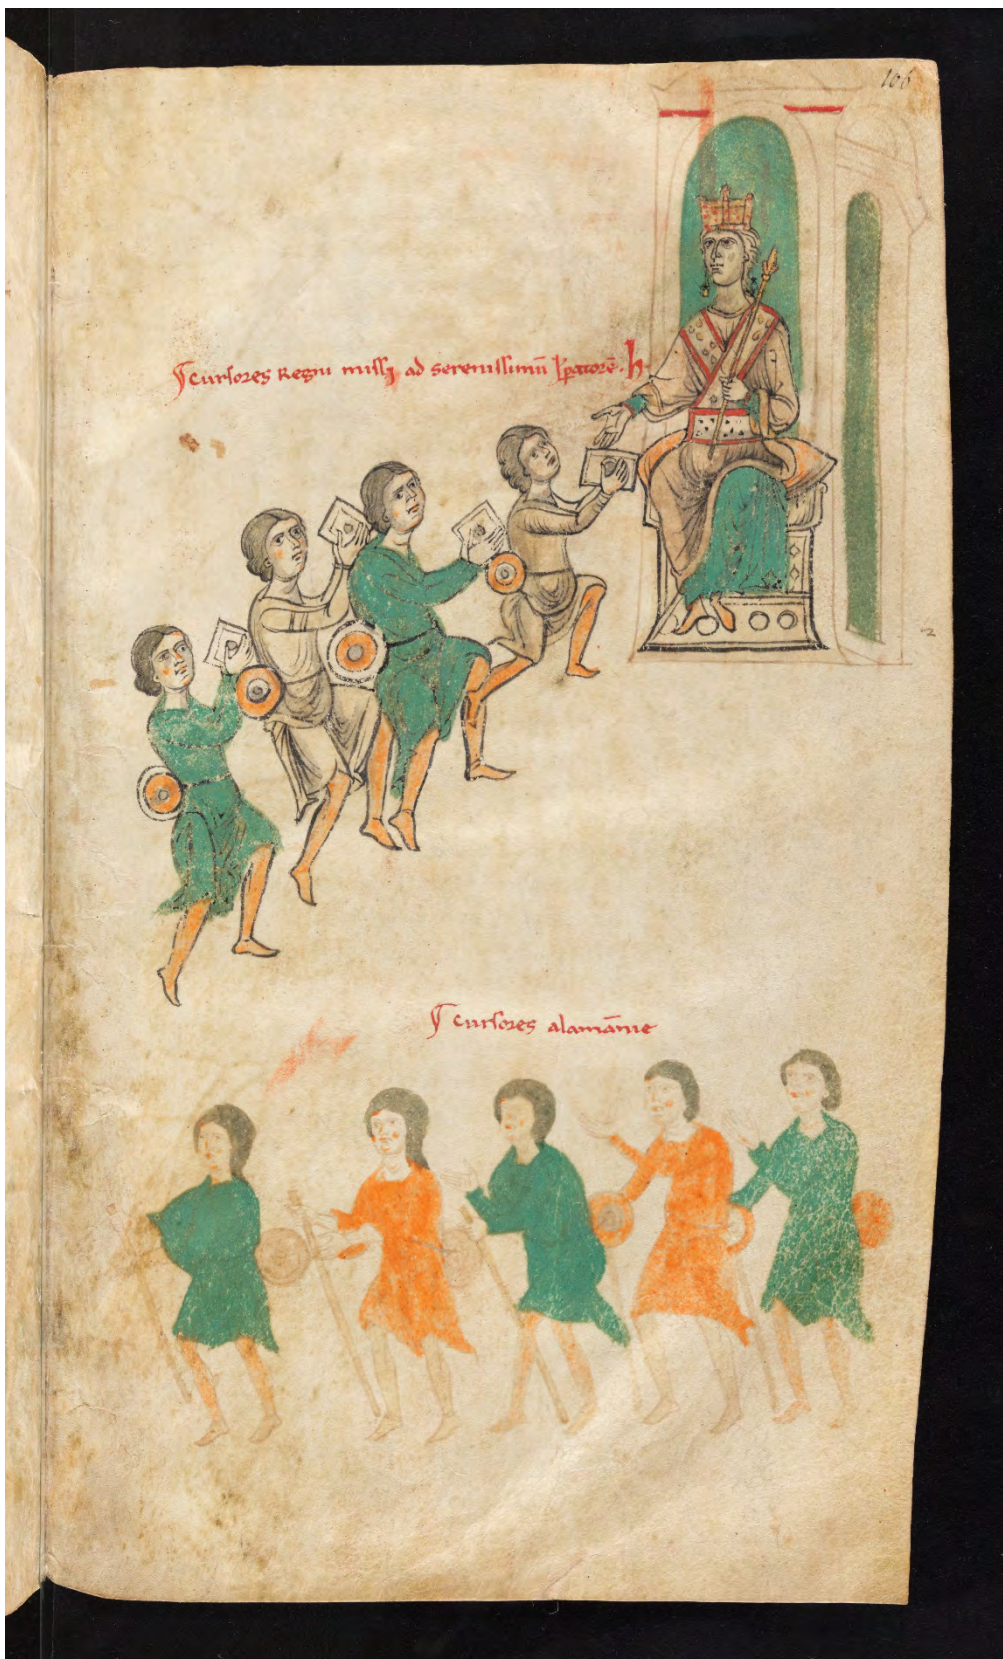 106
¶ cursores Regni missi ad serenissimū Īpatorē · h ·
¶ cursores alamānie